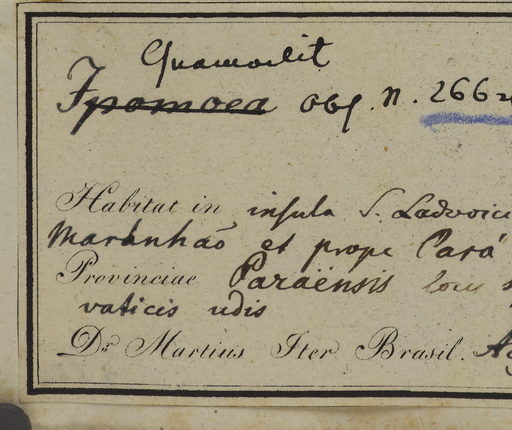 Quamoclit
Ipomoea obs. n. 266
Habitat in insula S. Ludovici
Maranhaõ et prope Pará
Provinciae Paraënsis locis
vaticis udis
Dr. Martius Iter Brasil.